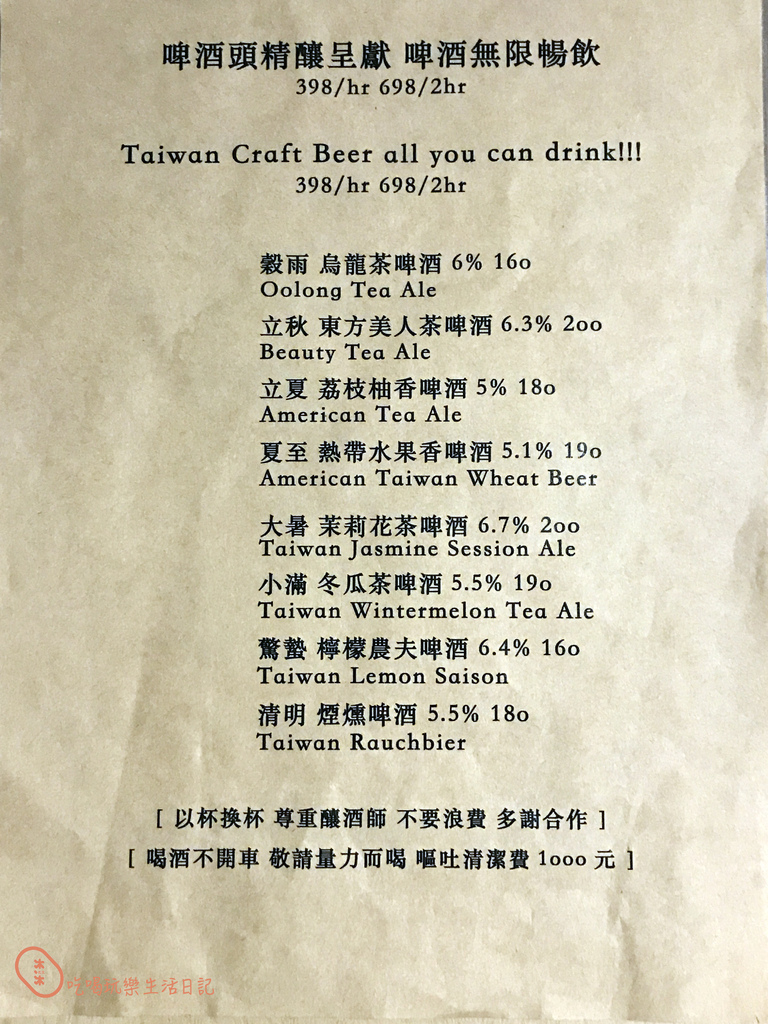 啤酒頭精釀呈獻 啤酒無限暢飲
398/hr 698/2hr
Taiwan Craft Beer all you can drink!!!
398/hr 698/2hr
穀雨 烏龍茶啤酒 6% 160
Oolong Tea Ale
立秋 東方美人茶啤酒 6.3% 200
Beauty Tea Ale
立夏 荔枝柚香啤酒 5% 180
American Tea Ale
夏至 熱帶水果香啤酒 5.1% 190
American Taiwan Wheat Beer
大暑 茉莉花茶啤酒 6.7% 200
Taiwan Jasmine Session Ale
小滿 冬瓜茶啤酒 5.5% 190
Taiwan Wintermelon Tea Ale
驚蟄 檸檬農夫啤酒 6.4% 160
Taiwan Lemon Saison
清明 煙燻啤酒 5.5% 180
Taiwan Rauchbier
[ 以杯換杯 尊重釀酒師 不要浪費 多謝合作 ]
[ 喝酒不開車 敬請量力而喝 嘔吐清潔費 1000 元 ]
吃喝玩樂生活日記